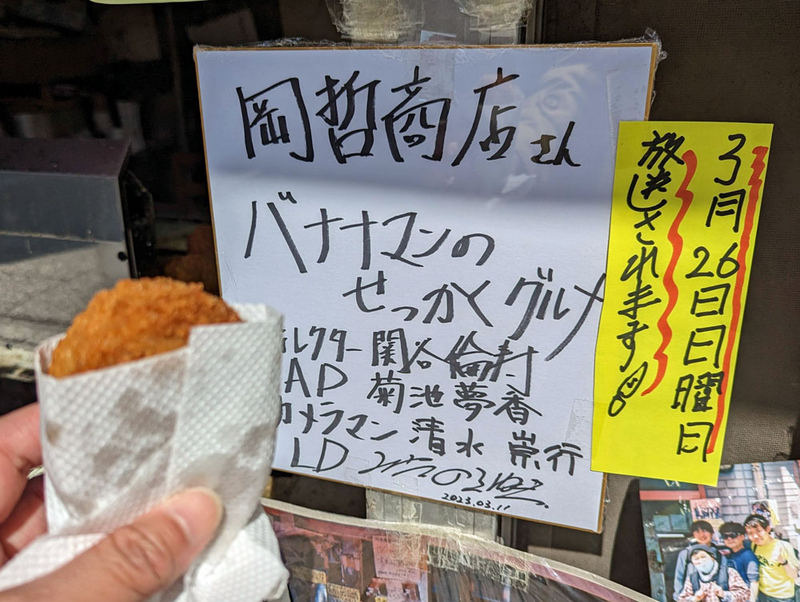 岡哲商店さん
バナナマンの
せっかくグルメ
ディレクター 関谷倫
AD 菊池夢香
カメラマン 清水 崇行
LD
2023.03.11
3月26日日曜日
放送されます